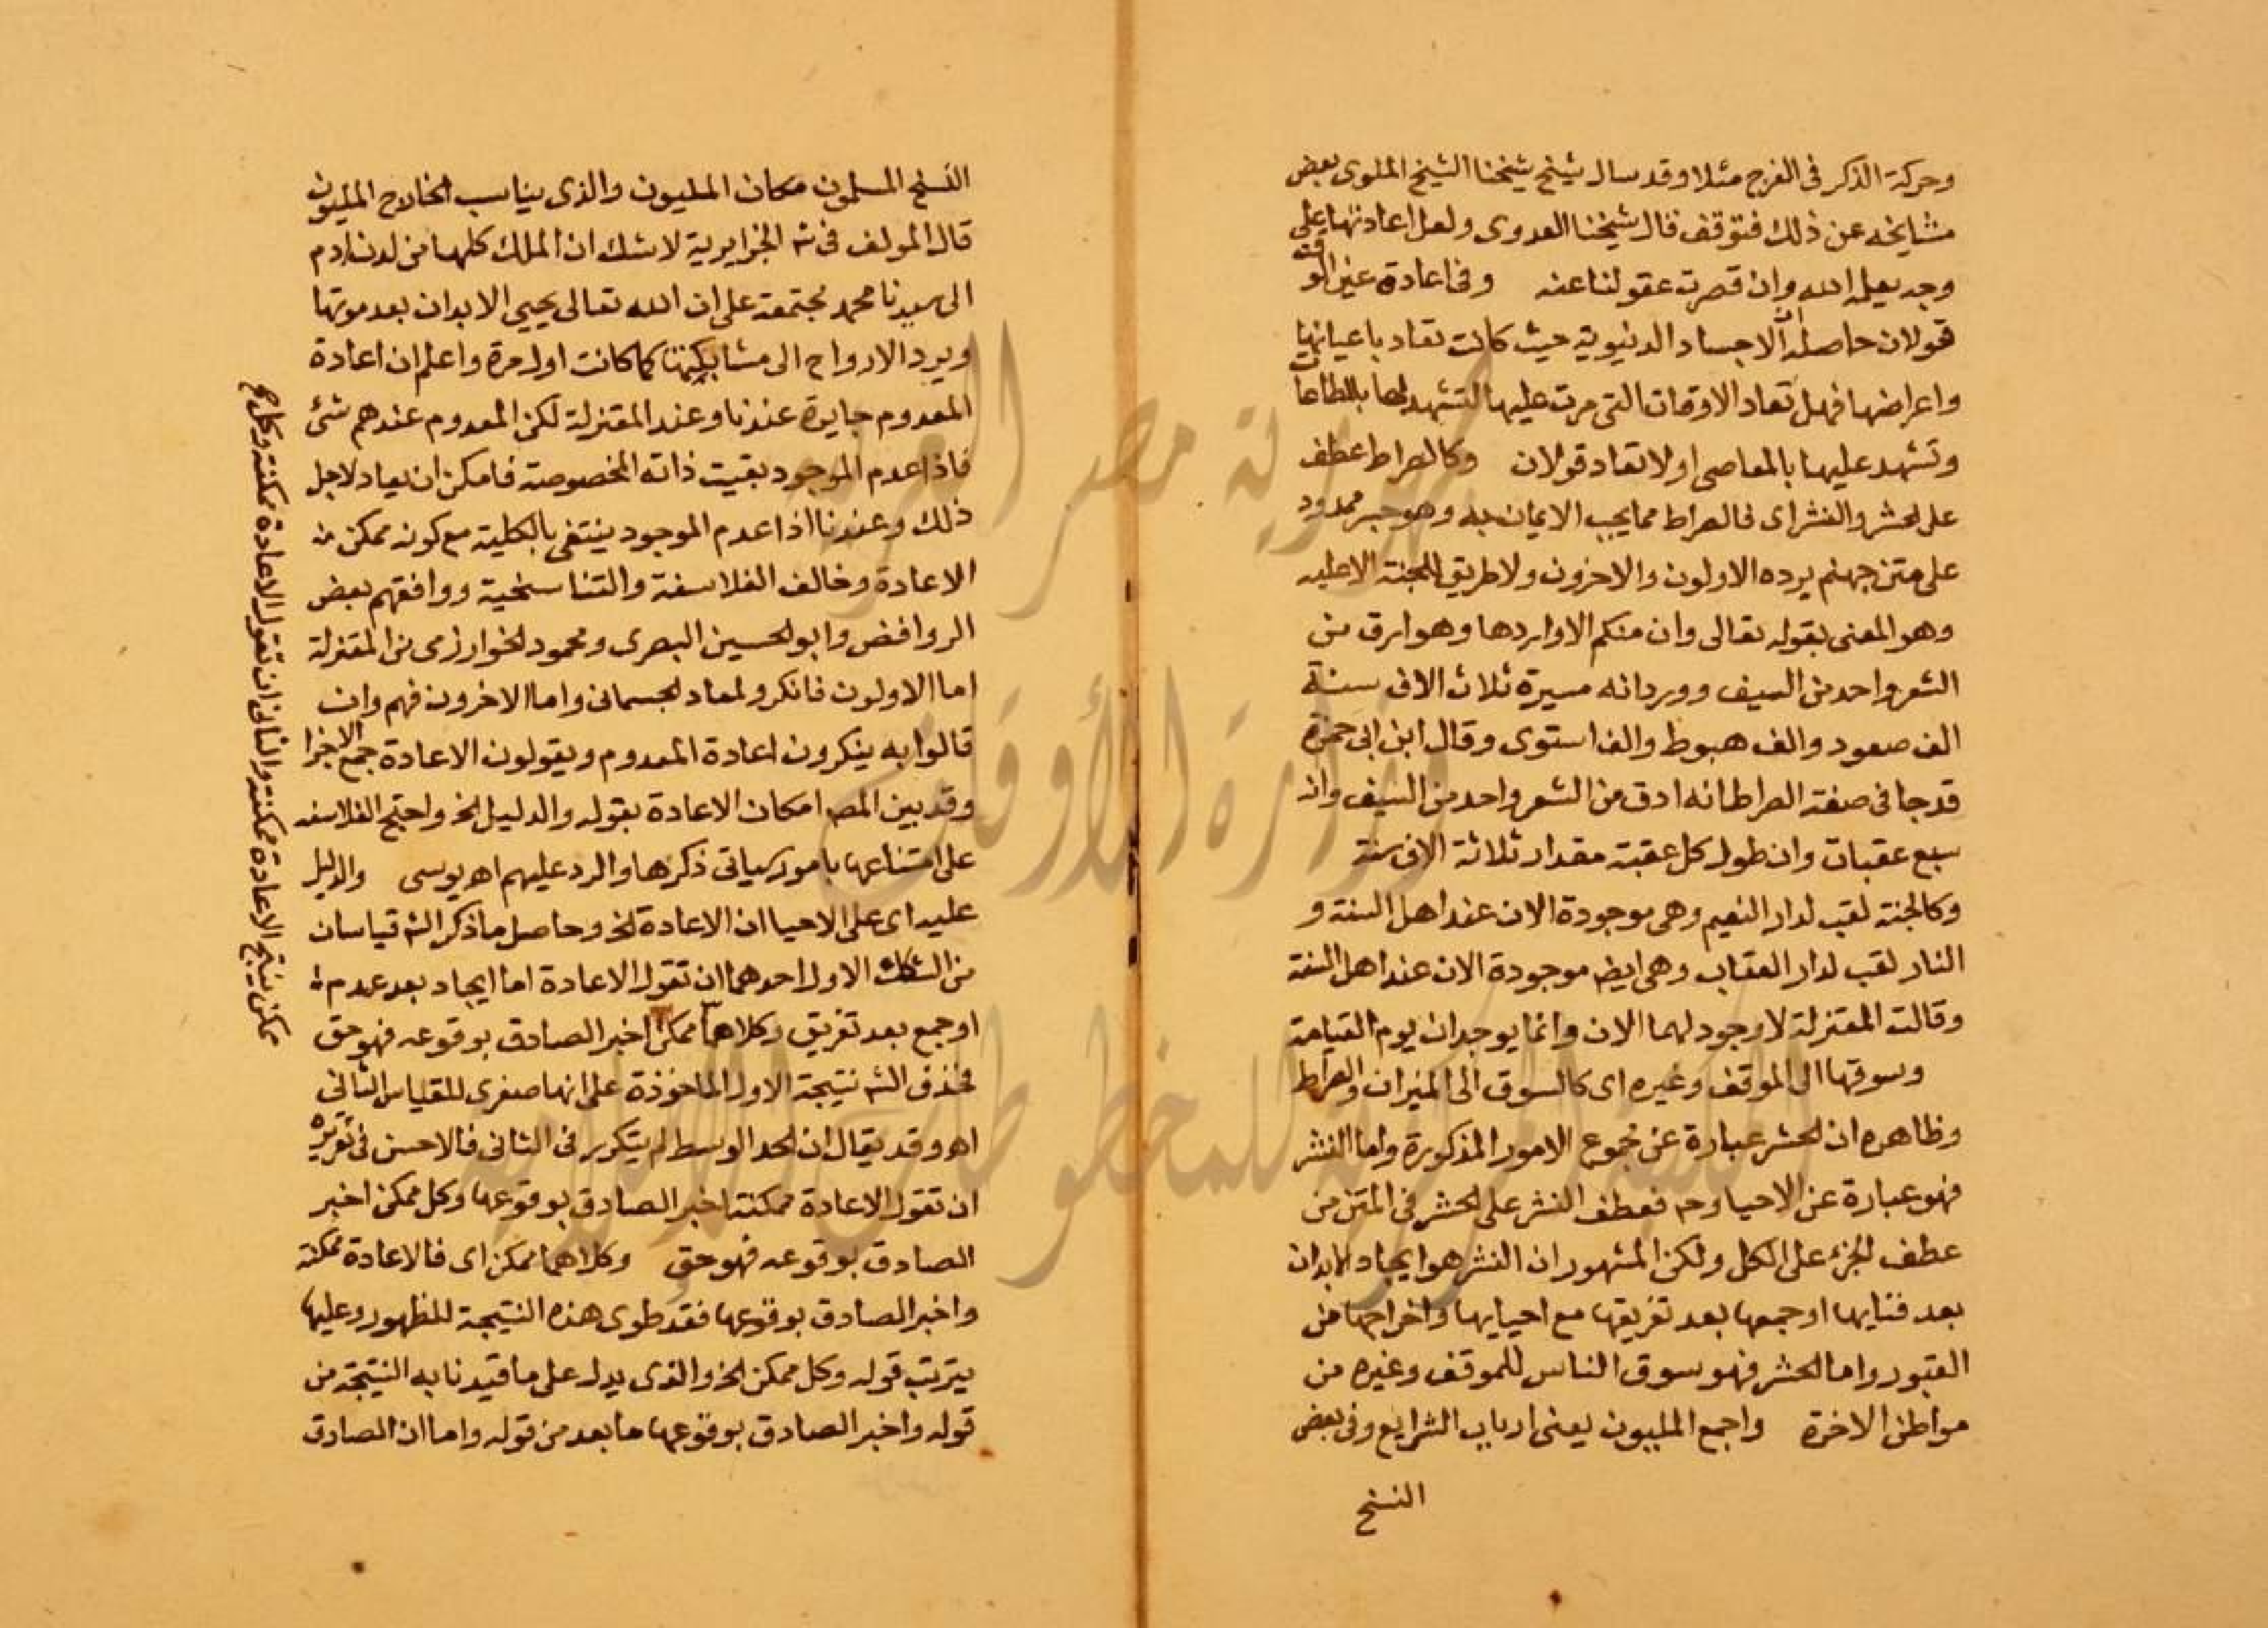 وحركة الذكر في الفرج مثلا وقد سال شيخ شيخنا الشيخ الملوى بعض
مشايخه عن ذلك فتوقف قال شيخنا العدوى ولعل اعادتها على
وجه يعلمه الله وان قصرت عقولنا عنه وفى اعادة عين الوقت
قولان حاصله ان الاجساد الدنيوية حيث كانت تعاد باعيانها
واعراضها فهل تعاد الاوقات التى مرت عليها لتشهد لها بالطاعات
وتشهد عليها بالمعاصى اولا تعاد قولان وكالصراط عطف
على الحشر والنشر اى فالصراط مما يجب الايمان به وهو جسر ممدود
على متن جهنم يرده الاولون والاخرون ولا طريق للجنة الا عليه
وهو المعنى بقوله تعالى وان منكم الا واردها وهو ارق من
الشعر واحد من السيف وورد انه مسيرة ثلاث الاف سنة
الف صعود والف هبوط والف استوى وقال ابن ابى حمزة
قد جا فى صفة الصراط انه ادق من الشعر واحد من السيف وان
سبع عقبات وان طول كل عقبة مقدار ثلاثة الاف سنة
وكالجنة لقب لدار النعيم وهى موجودة الان عند اهل السنة و
النار لقب لدار العقاب وهى ايضا موجودة الان عند اهل السنة
وقالت المعتزلة لا وجود لهما الان وانما يوجدان يوم القيامة
وسوقها الى الموقف وغيره اى كالسوق الى الميزان والصراط
وظاهره ان الحشر عبارة عن مجموع الامور المذكورة واما النشر
فهو عبارة عن الاحيا وح فعطف النشر على الحشر فى المتن من
عطف الجزء على الكل ولكن المشهور ان النشر هو ايجاد الابدان
بعد فنايها او جمعها بعد تفريقها مع احيايها واخراجها من
القبور واما الحشر فهو سوق الناس للموقف وغيره من
مواطن الاخرة واجمع المليون يعنى ارباب الشرايع وفى بعض
النسخ
النسخ المسلمون مكان المليون والذى يناسب الخلاح المليون
قال المولف فى شـ الجزايرية لا شك ان الملك كلها من لدن ادم
الى سيدنا محمد مجتمعة على ان الله تعالى يحيي الابدان بعد موتها
ويرد الارواح الى كما كانت اول مرة واعلم ان اعادة
المعدوم جايزة عندنا وعند المعتزلة لكن المعدوم عندهم شئ
فاذا عدم الموجود بقيت ذاته المخصوصة فامكن ان يعاد لاجل
ذلك وعندنا اذا عدم الموجود ينتفى بالكلية مع كونه ممكن
الاعادة وخالف الفلاسفة والتناسخية ووافقهم بعض
الروافض وابو الحسين البصرى ومحمود الخوارزمى من المعتزلة
اما الاولون فانكرو المعاد الجسمانى واما الاخرون فهم وان
قالوا به ينكرون اعادة المعدوم ويقولون الاعادة جمع الاجزا
وقد بين المصـ امكان الاعادة بقوله والدليل الخ واحتج الفلاسفه
على امتناعها بامور سياتى ذكرها والرد عليهم اهـ يوسى والدليل
عليه اى على الاحيا ان الاعادة الخ وحاصل ما ذكر الشـ قياسان
من الشكل الاول احدهما ان تقول الاعادة اما ايجاد بعد عدم
او جمع بعد تفريق وكلاهما ممكن اخبر الصادق بوقوعه فهو حق
فحذف الشـ نتيجة الاول الماخوذة على انها صغرى للقياس الثانى
اهـ وقد يقال ان الحد الوسط لم يتكرر فى الثانى فالاحسن فى تقريره
ان تقول الاعادة ممكنة اخبر الصادق بوقوعها وكل ممكن اخبر
الصادق بوقوعه فهو حق وكلاهما ممكن اى فالاعادة ممكنة
واخبر الصادق بوقوعها فقد طوى هذه النتيجة للظهور وعليها
يترتب قوله وكل ممكن الخ والذى يدل على ما قيدنا به النتيجة من
قوله واخبر الصادق بوقوعها ما بعد من قوله واما ان الصادق
ممكن ينتج الاعادة ممكنة والثانى ان تقول الاعادة ممكنة وكل
جمهورية مصر العربية
وزارة الأوقاف
المكتبة المركزية للمخطوطات الإسلامية